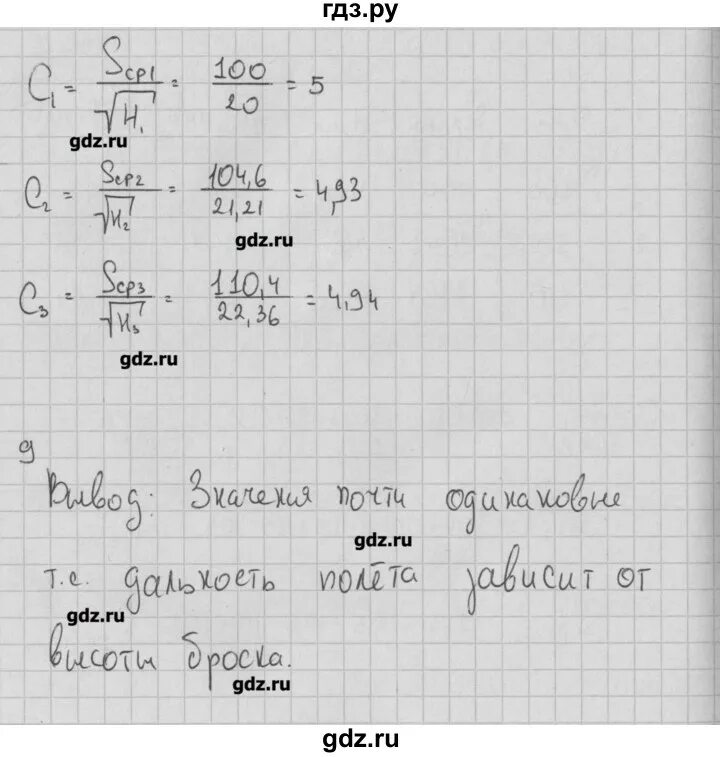 гдз.ру
C₁ = Sср1 / √H₁ = 100 / 20 = 5
gdz.ru
C₂ = Sср2 / √H₂ = 104,6 / 21,21 = 4,93
gdz.ru
C₃ = Sср3 / √H₃ = 110,4 / 22,36 = 4,94
gdz.ru
9
Вывод. Значения почти одинаковые
gdz.ru
т.е. дальность полёта зависит от
gdz.ru
высоты броска.
gdz.ru
gdz.ru